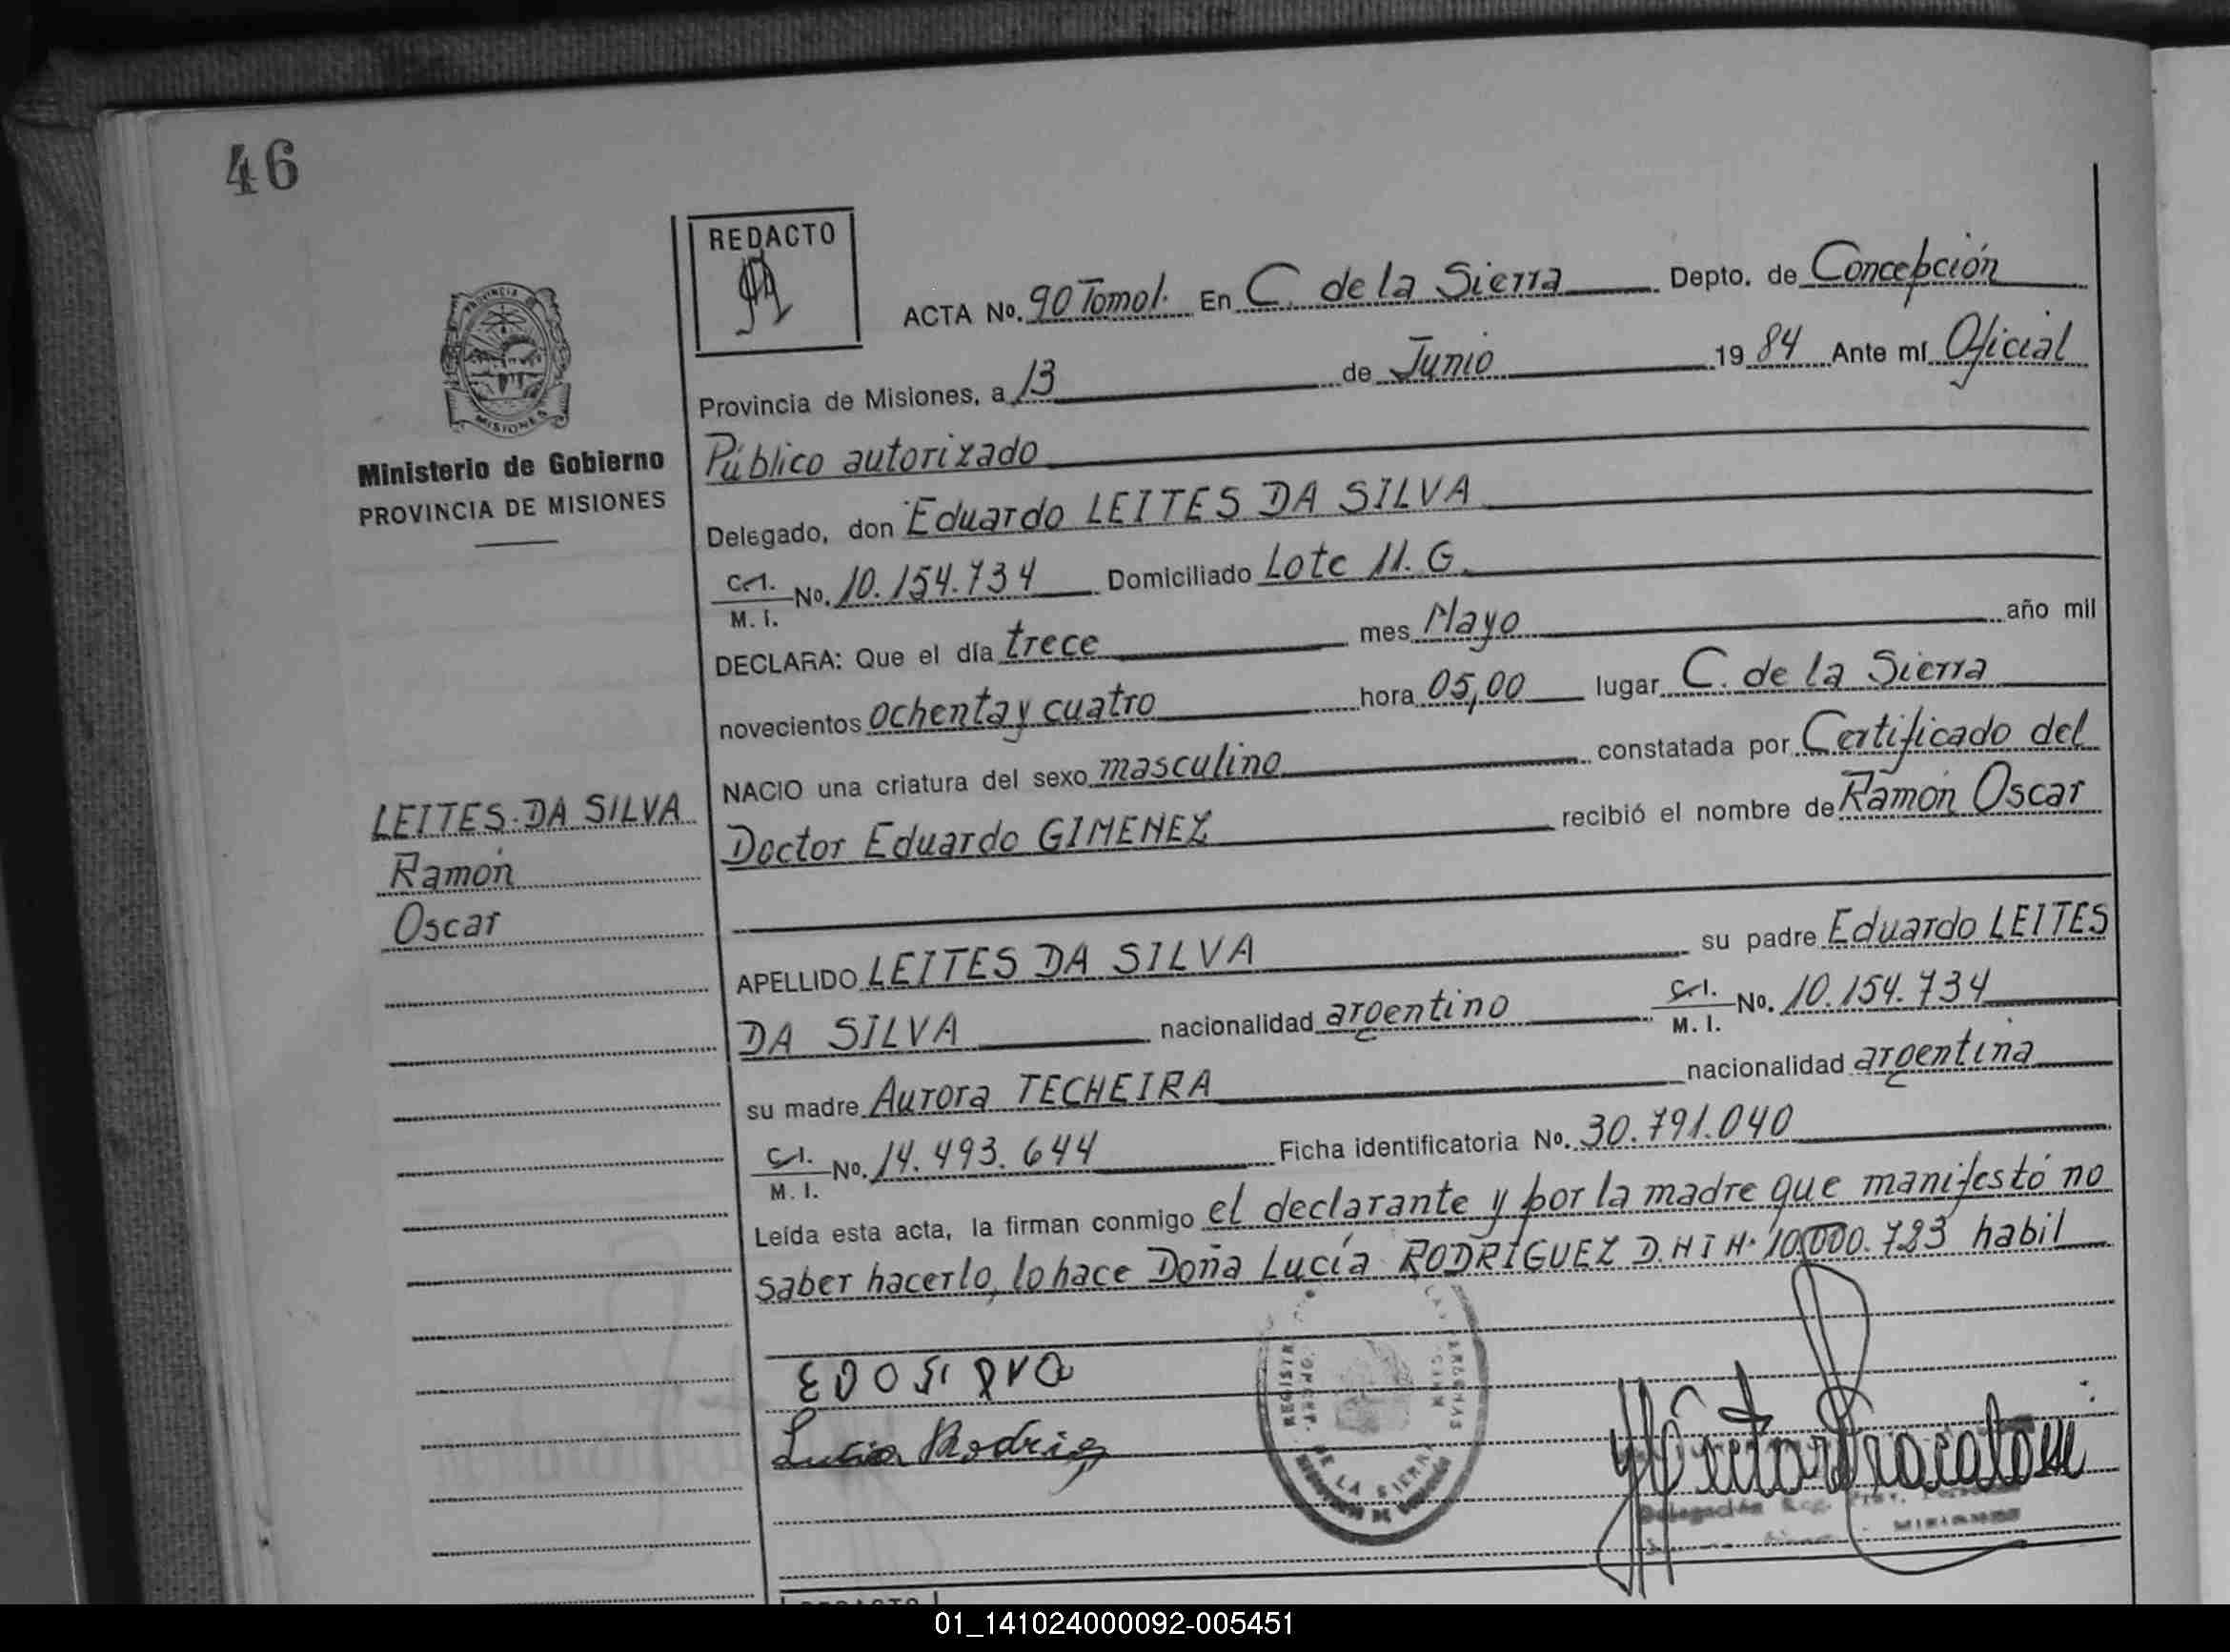 46
REDACTO
ACTA No. 90 Tomo I. En C. de la Sierra Depto. de Concepción
Provincia de Misiones, a 13 de Junio 1984 Ante mí Oficial
Público autorizado
Delegado, don Eduardo LEITES DA SILVA
C.I. M. I. No. 10.154.734 Domiciliado Lote 11. G.
DECLARA: Que el día trece mes Mayo año mil
novecientos ochenta y cuatro hora 05,00 lugar C. de la Sierra
NACIO una criatura del sexo masculino constatada por Certificado del
Doctor Eduardo GIMENEZ recibió el nombre de Ramón Oscar
APELLIDO LEITES DA SILVA su padre Eduardo LEITES
DA SILVA nacionalidad argentino C.I. M. I. No. 10.154.734
su madre Aurora TECHEIRA nacionalidad argentina
C.I. M. I. No. 14.493.644 Ficha identificatoria No. 30.791.040
Leída esta acta, la firman conmigo el declarante y por la madre que manifestó no
saber hacerlo, lo hace Doña Lucía RODRÍGUEZ D.N I N° 10.000.723 habil
PROVINCIA
MISIONES
Ministerio de Gobierno
PROVINCIA DE MISIONES
LEITES DA SILVA
Ramón
Oscar
Lucia Rodrig
DE LA SIERRA
Delegación
MISIONES
01_141024000092-005451